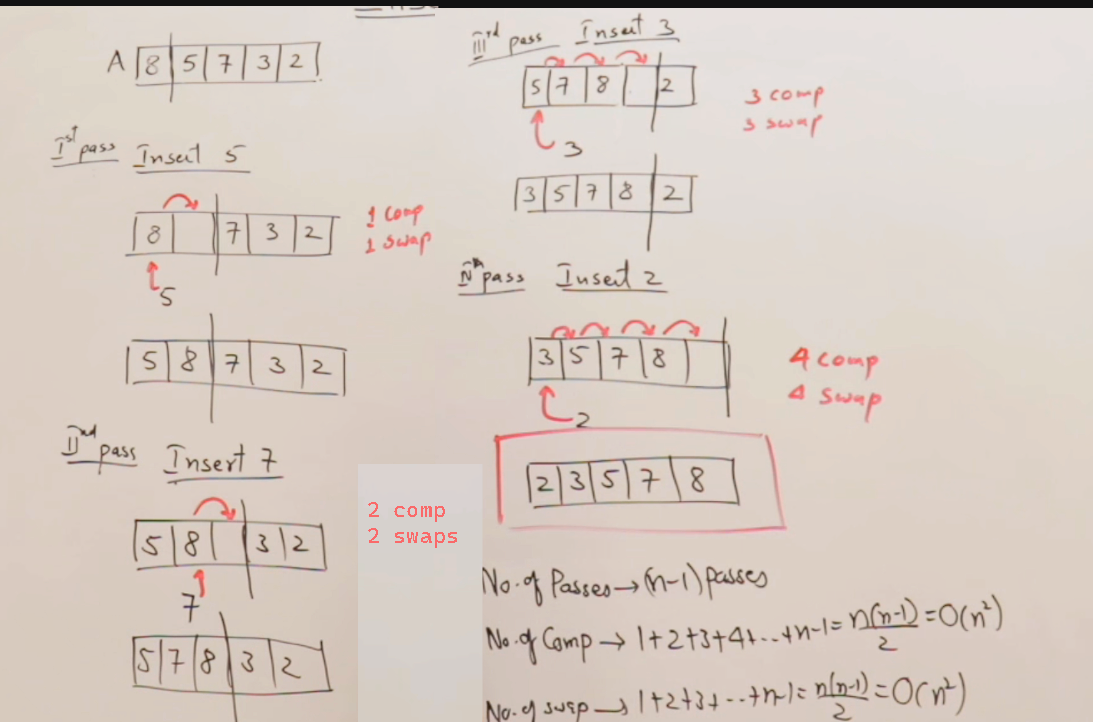 A 8 5 7 3 2
Ist pass Insert 5
8 7 3 2
1 comp
1 swap
5
5 8 7 3 2
IInd pass Insert 7
5 8 3 2
2 comp
2 swaps
7
5 7 8 3 2
IIIrd pass Insert 3
5 7 8 2
3 comp
3 swap
3
3 5 7 8 2
pass Insert 2
3 5 7 8
4 comp
4 swap
2
2 3 5 7 8
No. of Passes → (n-1) passes
No. of Comp → 1+2+3+4+...+n-1 = n(n-1)/2 = O(n²)
No. of swap → 1+2+3+...+n-1 = n(n-1)/2 = O(n²)